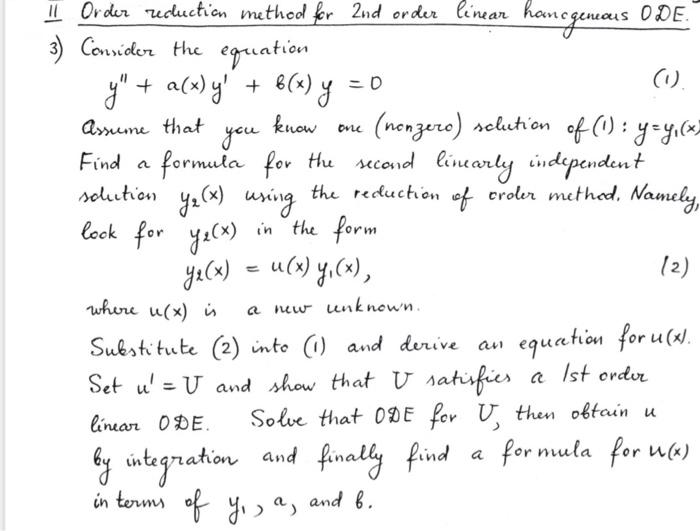 II Order reduction method for 2nd order linear homogeneous ODE.
3) Consider the equation
y" + a(x) y' + b(x) y = 0 (1).
Assume that you know one (nonzero) solution of (1) : y=y₁(x)
Find a formula for the second linearly independent
solution y₂(x) using the reduction of order method. Namely,
look for y₂(x) in the form
y₂(x) = u(x) y₁(x), (2)
where u(x) is a new unknown.
Substitute (2) into (1) and derive an equation for u(x).
Set u' = U and show that U satisfies a 1st order
linear ODE. Solve that ODE for U, then obtain u
by integration and finally find a formula for u(x)
in terms of y₁, a, and b.